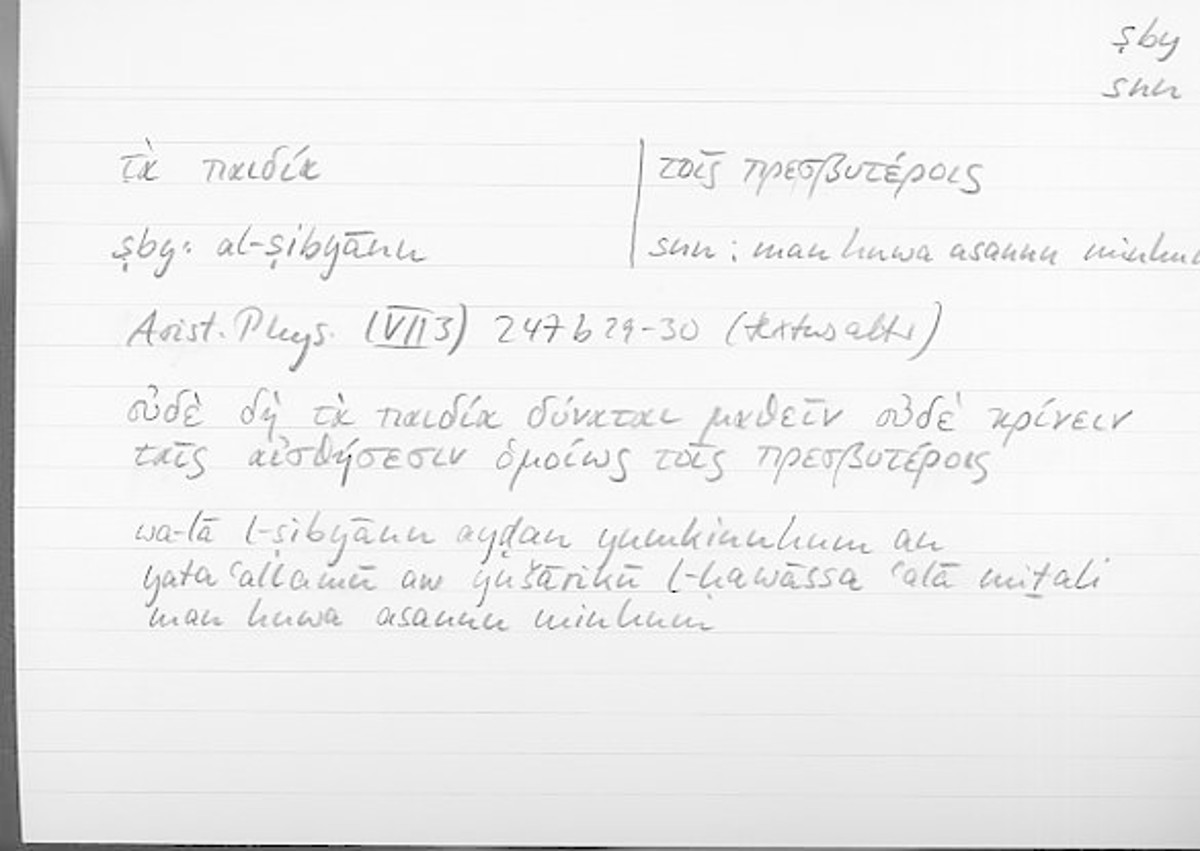 ṣby
snn
τὰ παιδία | τοῖς πρεσβυτέροις
ṣby: al-ṣibyānu | snn: man huwa asannu minhu
Arist. Phys. (VII 3) 247 b 29-30 (textus alter)
οὐδὲ δὴ τὰ παιδία δύναται μαθεῖν οὐδὲ κρίνειν
ταῖς αἰσθήσεσιν ὁμοίως τοῖς πρεσβυτέροις
wa-lā l-ṣibyānu ayḍan yumkinuhum an
yataʿallamū aw yušārikū l-ḥawāssa ʿalā miṯali
man huwa asannu minhum